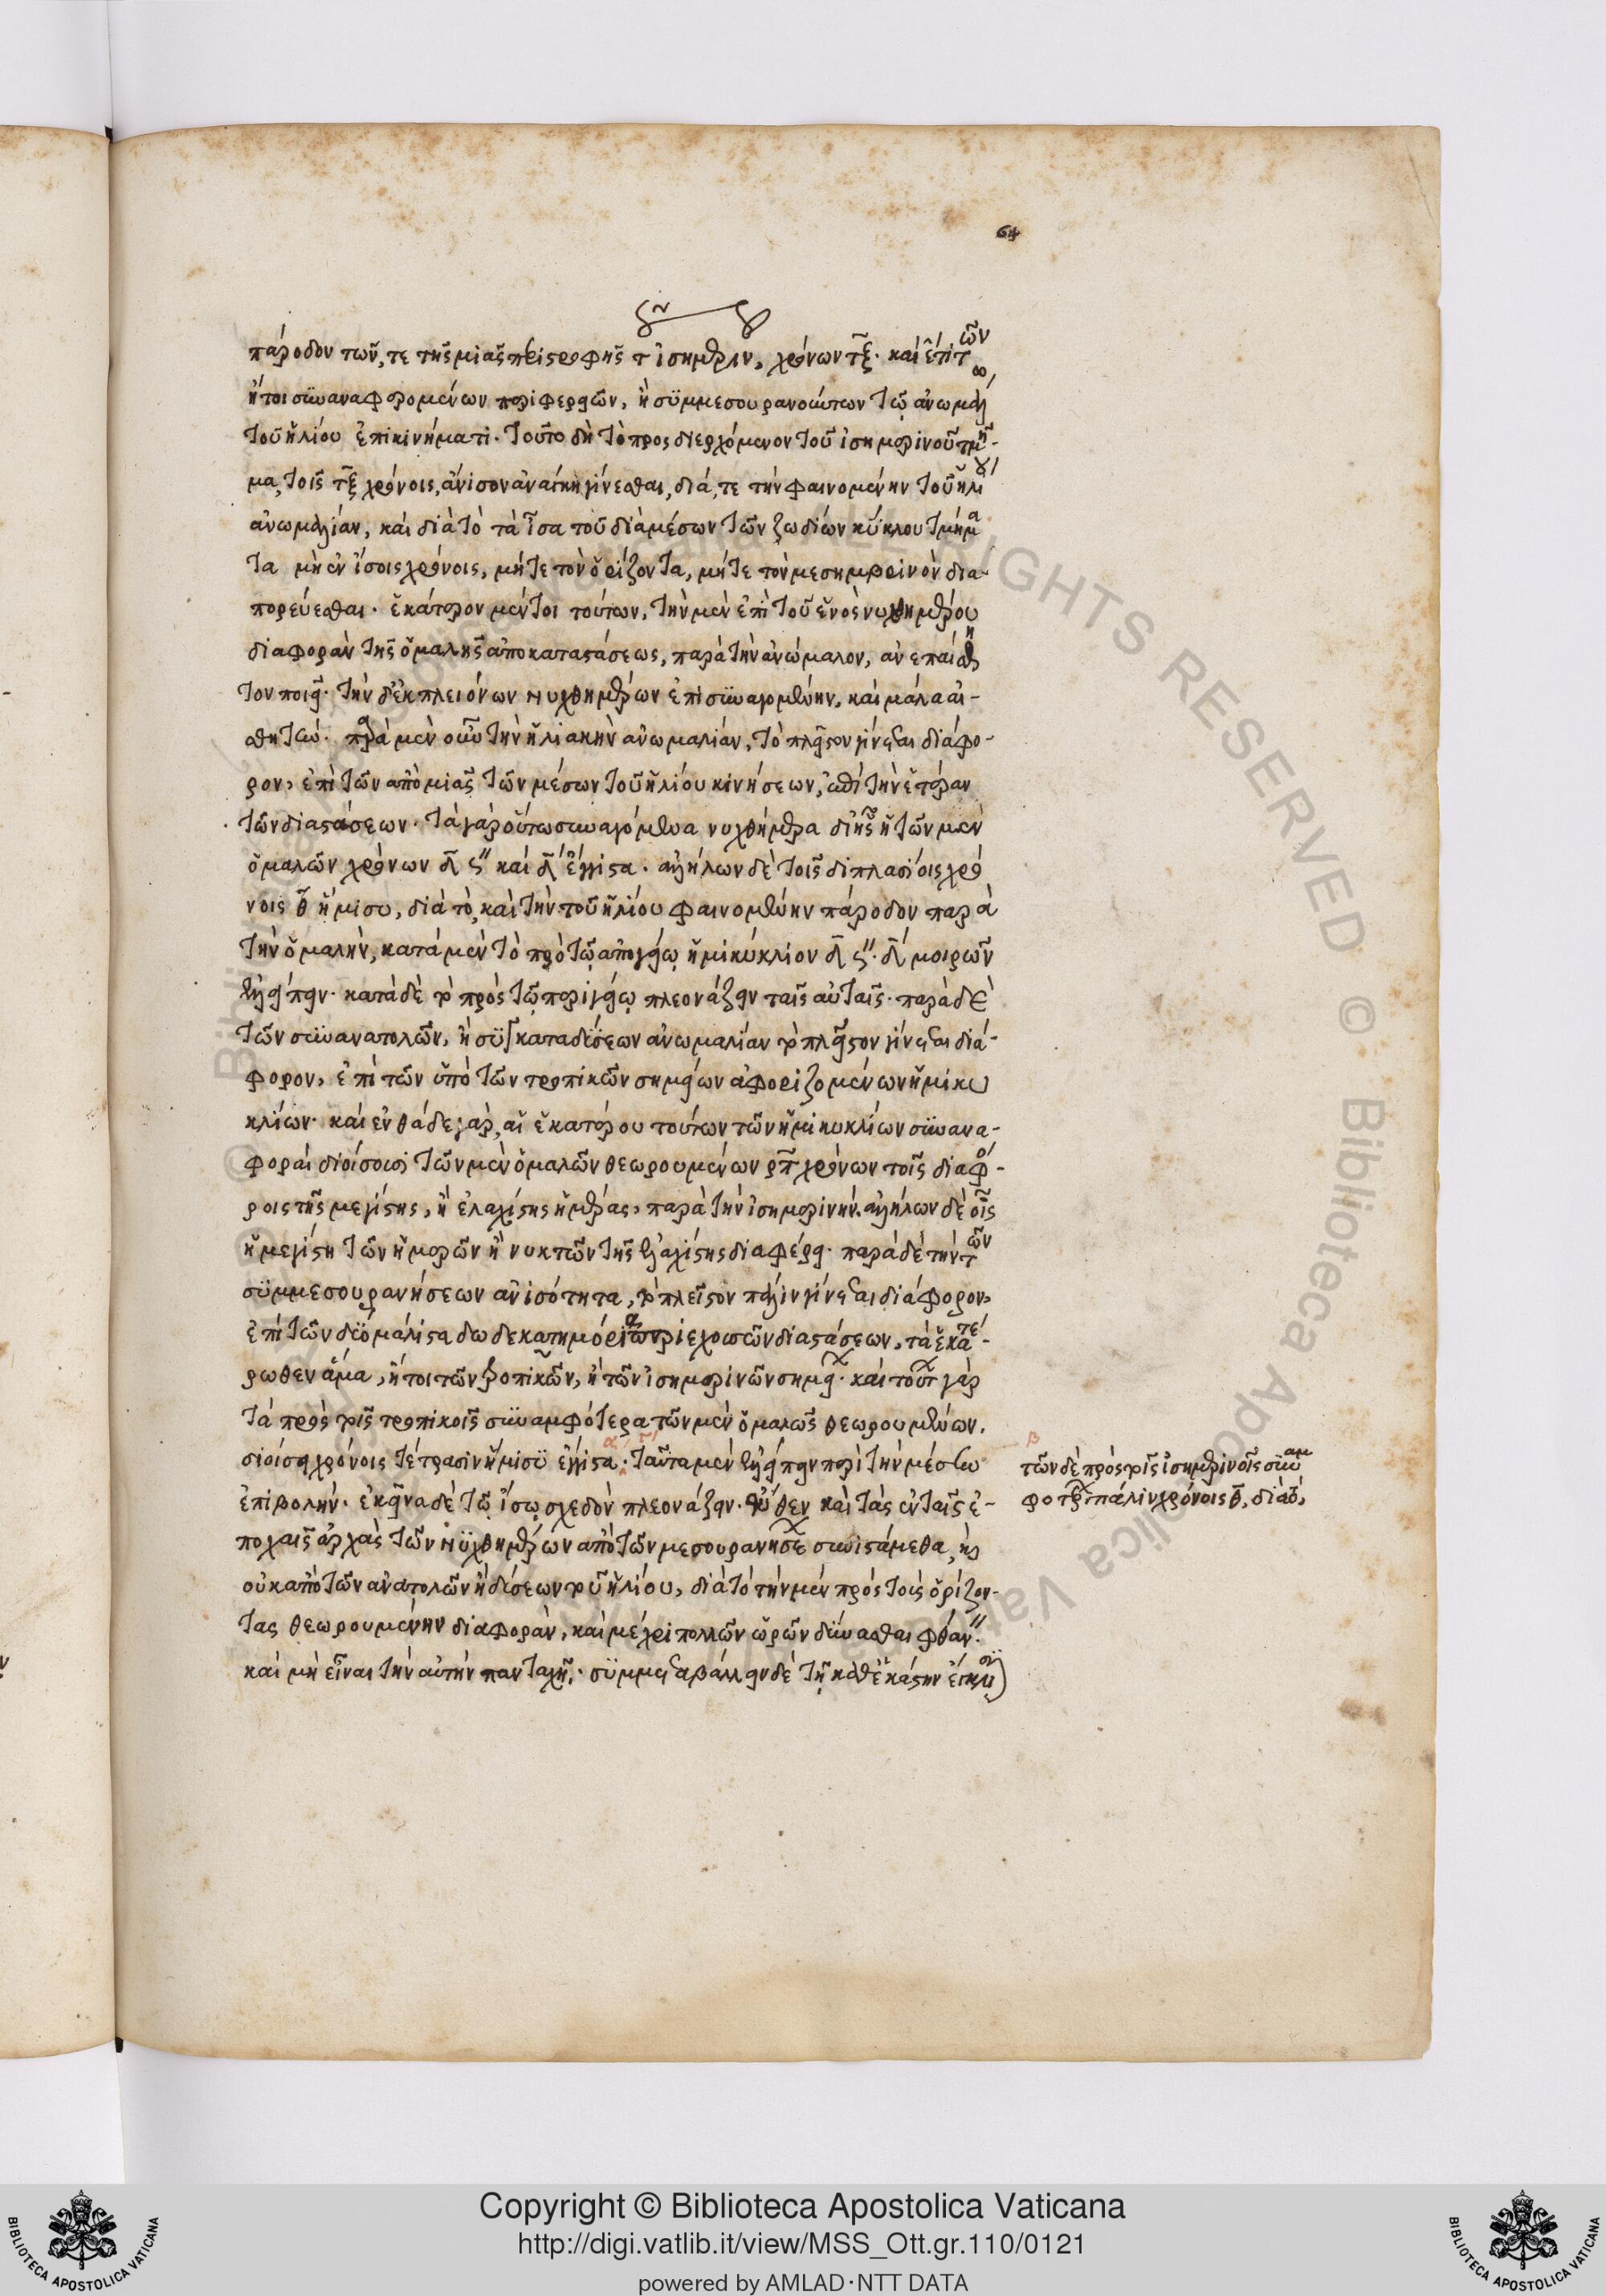 64
πάροδον τῶν, τε τῆς μιᾶς περιστροφῆς τ ἰσημεριν, χρόνων τξ. καὶ ἔτι τῶν
ἤτοι συναναφερομένων περιφερειῶν, ἢ συμμεσουρανουσῶν τῷ ἀνωμάλῳ
τοῦ ἡλίου ἐπικινήματι. τοῦτο δὴ τὸ προσδιερχόμενον τοῦ ἰσημερινοῦ τμῆ-
μα, τοῖς τξ χρόνοις, ἄνισον ἀνάγκη γίνεσθαι, διά, τε τὴν φαινομένην τοῦ ἡλίου
ἀνωμαλίαν, καὶ διὰ τὸ τὰ ἴσα τοῦ διὰ μέσων τῶν ζωδίων κύκλου τμήμα
τα μὴ ἐν ἴσοις χρόνοις, μήτε τὸν ὁρίζοντα, μήτε τὸν μεσημβρινὸν δια-
πορεύεσθαι. ἑκάτερον μέντοι τούτων, τὴν μὲν ἐπὶ τοῦ ἑνὸς νυχθημέρου
διαφορὰν τῆς ὁμαλῆς ἀποκαταστάσεως, παρὰ τὴν ἀνώμαλον, ἀνεπαίσθη
τον ποιεῖ. τὴν δ' ἐκ πλειόνων νυχθημέρων ἐπισυναγομένην, καὶ μάλα αἰ-
σθητήν. παρὰ μὲν οὖν τὴν ἡλιακὴν ἀνωμαλίαν, τὸ πλεῖστον γίνεται διάφο-
ρον, ἐπὶ τῶν ἀπὸ μιᾶς τῶν μέσων τοῦ ἡλίου κινήσεων, ἐπὶ τὴν ἑτέραν
τῶν διαστάσεων. τὰ γὰρ οὕτω συναγόμενα νυχθήμερα διοίσει τῶν μὲν
ὁμαλῶν χρόνων δ ς'' καὶ δ' ἔγγιστα. ἀλλήλων δὲ τοῖς διπλασίοις χρό
νοις θ ἥμισυ, διὰ τὸ, καὶ τὴν τοῦ ἡλίου φαινομένην πάροδον παρὰ
τὴν ὁμαλὴν, κατὰ μὲν τὸ πρὸς τῷ ἀπογείῳ ἡμικύκλιον δ ς''. δ' μοιρῶν
ἐλλείπειν. κατὰ δὲ τὸ πρὸς τῷ περιγείῳ πλεονάζειν ταῖς αὐταῖς. παρὰ δὲ
τῶν συνανατολῶν, ἢ συγκαταδύσεων ἀνωμαλίαν τὸ πλεῖστον γίνεται διά-
φορον, ἐπὶ τῶν ὑπὸ τῶν τροπικῶν σημείων ἀφοριζομένων ἡμικυ
κλίων. καὶ ἐνθάδε γὰρ, αἱ ἑκατέρου τούτων τῶν ἡμικυκλίων συνανα-
φοραὶ διοίσουσι τῶν μὲν ὁμαλῶν θεωρουμένων ρπ χρόνων τοῖς διαφό-
ροις τῆς μεγίστης, ἢ ἐλαχίστης ἡμέρας, παρὰ τὴν ἰσημερινήν. ἀλλήλων δὲ οἷς
ἡ μεγίστη τῶν ἡμερῶν ἢ νυκτῶν τῆς ἐλαχίστης διαφέρει. παρὰ δὲ τὴν τῶν
συμμεσουρανήσεων ἀνισότητα, τὸ πλεῖστον πάλιν γίνεται διάφορον,
ἐπὶ τῶν δύο μάλιστα δωδεκατημόρια περιεχουσῶν διαστάσεων, τὰ ἑκατέ-
ρωθεν ἅμα, ἤτοι τῶν τροπικῶν, ἢ τῶν ἰσημερινῶν σημεί. καὶ τούτ γὰρ
τὰ πρὸς τοῖς τροπικοῖς συναμφότερα τῶν μὲν ὁμαλῶς θεωρουμένων.
διοίσει χρόνοις τέτρασιν ἥμισυ ἔγγιστα. ταῦτα μὲν ἐλλείπειν περὶ τὴν μέσην
ἐπιβολήν. ἐκεῖνα δὲ τῷ ἴσῳ σχεδὸν πλεονάζειν. ἔνθεν καὶ τὰς ἐν ταῖς ἐ-
ποχαῖς ἀρχὰς τῶν νυχθημέρων ἀπὸ τῶν μεσουρανήσε συνιστάμεθα, καὶ
οὐκ ἀπὸ τῶν ἀνατολῶν ἢ δύσεων τοῦ ἡλίου, διὰ τὸ τὴν μὲν πρὸς τοὺς ὁρίζον-
τας θεωρουμένην διαφορὰν, καὶ μέχρι πολλῶν ὡρῶν δύνασθαι φθάνειν.
καὶ μὴ εἶναι τὴν αὐτὴν πανταχῇ. συμμεταβάλλειν δὲ τῇ καθ' ἑκάστην ἔγκλισιν
β
τῶν δὲ πρὸς τοῖς ἰσημερινοῖς συναμ
φοτέρ πάλιν χρόνοις θ, διὰ τό,
Copyright © Biblioteca Apostolica Vaticana
http://digi.vatlib.it/view/MSS_Ott.gr.110/0121
powered by AMLAD·NTT DATA
BIBLIOTECA APOSTOLICA VATICANA
BIBLIOTECA APOSTOLICA VATICANA